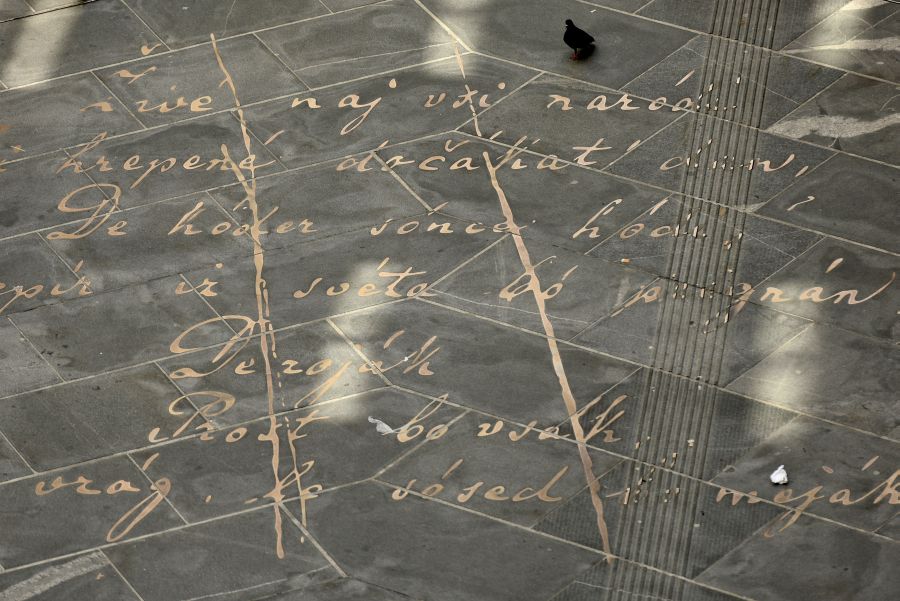 žive naj vsi naród
hrepené dočakat' dan,
De kóder sónce hódi,
prepír iz svéta bó pregnán
De roják
Prost bo vsak,
vrág, le sósed bo moják